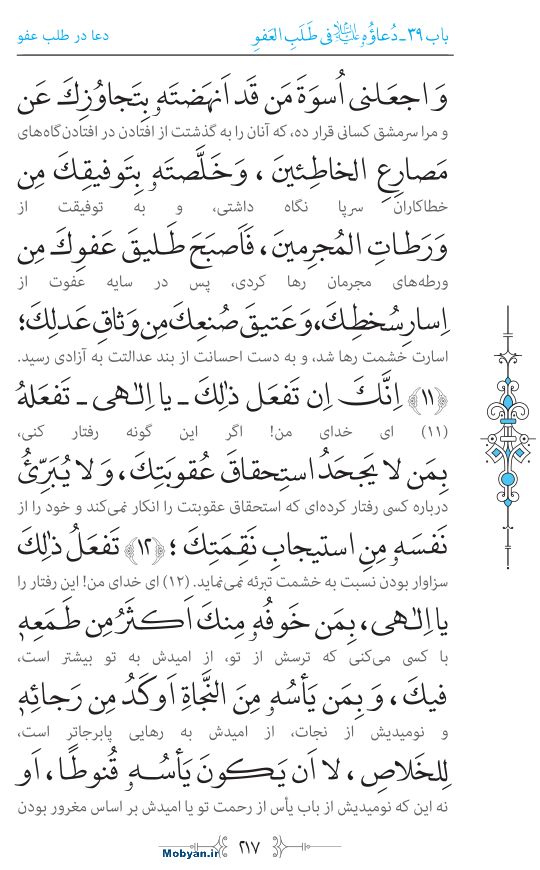 باب ۳۹ - دُعاؤُهُ علیه السلام فی طَلَبِ العَفوِ
دعا در طلب عفو
وَ اجعَلنی اُسوَةَ مَن قَد اَنهَضتَهُ بِتَجاوُزِكَ عَن
و مرا سرمشق کسانی قرار ده، که آنان را به گذشتت از افتادن در افتادن‌گاه‌های
مَصارِعِ الخاطِئینَ ، وَ خَلَّصتَهُ بِتَوفیقِكَ مِن
خطاکاران سرپا نگاه داشتی، و به توفیقت از
وَرَطاتِ المُجرِمینَ ، فَاَصبَحَ طَلیقَ عَفوِكَ مِن
ورطه‌های مجرمان رها کردی، پس در سایه عفوت از
اِسارِ سُخطِكَ، وَ عَتیقَ صُنعِكَ مِن وَثاقِ عَدلِكَ؛
اسارت خشمت رها شد، و به دست احسانت از بند عدالتت به آزادی رسید.
﴿۱۱﴾ اِنَّكَ اِن تَفعَل ذٰلِكَ - یا اِلٰهی - تَفعَلهُ
(۱۱) ای خدای من! اگر این گونه رفتار کنی،
بِمَن لا یَجحَدُ استِحقاقَ عُقوبَتِكَ، وَ لا یُبَرِّئُ
درباره کسی رفتار کرده‌ای که استحقاق عقوبتت را انکار نمی‌کند و خود را از
نَفسَهُ مِنِ استیجابِ نَقِمَتِكَ ؛ ﴿۱۲﴾ تَفعَلُ ذٰلِكَ
سزاوار بودن نسبت به خشمت تبرئه نمی‌نماید. (۱۲) ای خدای من! این رفتار را
یا اِلٰهی، بِمَن خَوفُهُ مِنكَ اَكثَرُ مِن طَمَعِهِ
با کسی می‌کنی که ترسش از تو، از امیدش به تو بیشتر است،
فیكَ، وَ بِمَن یَأسُهُ مِنَ النَّجاةِ اَوكَدُ مِن رَجائِهِ
و نومیدیش از نجات، از امیدش به رهایی پابرجاتر است،
لِلخَلاصِ ، لا اَن یَكونَ یَأسُهُ قُنوطًا، اَو
نه این که نومیدیش از باب یأس از رحمت تو یا امیدش بر اساس مغرور بودن
۲۱۷
Mobyan.ir